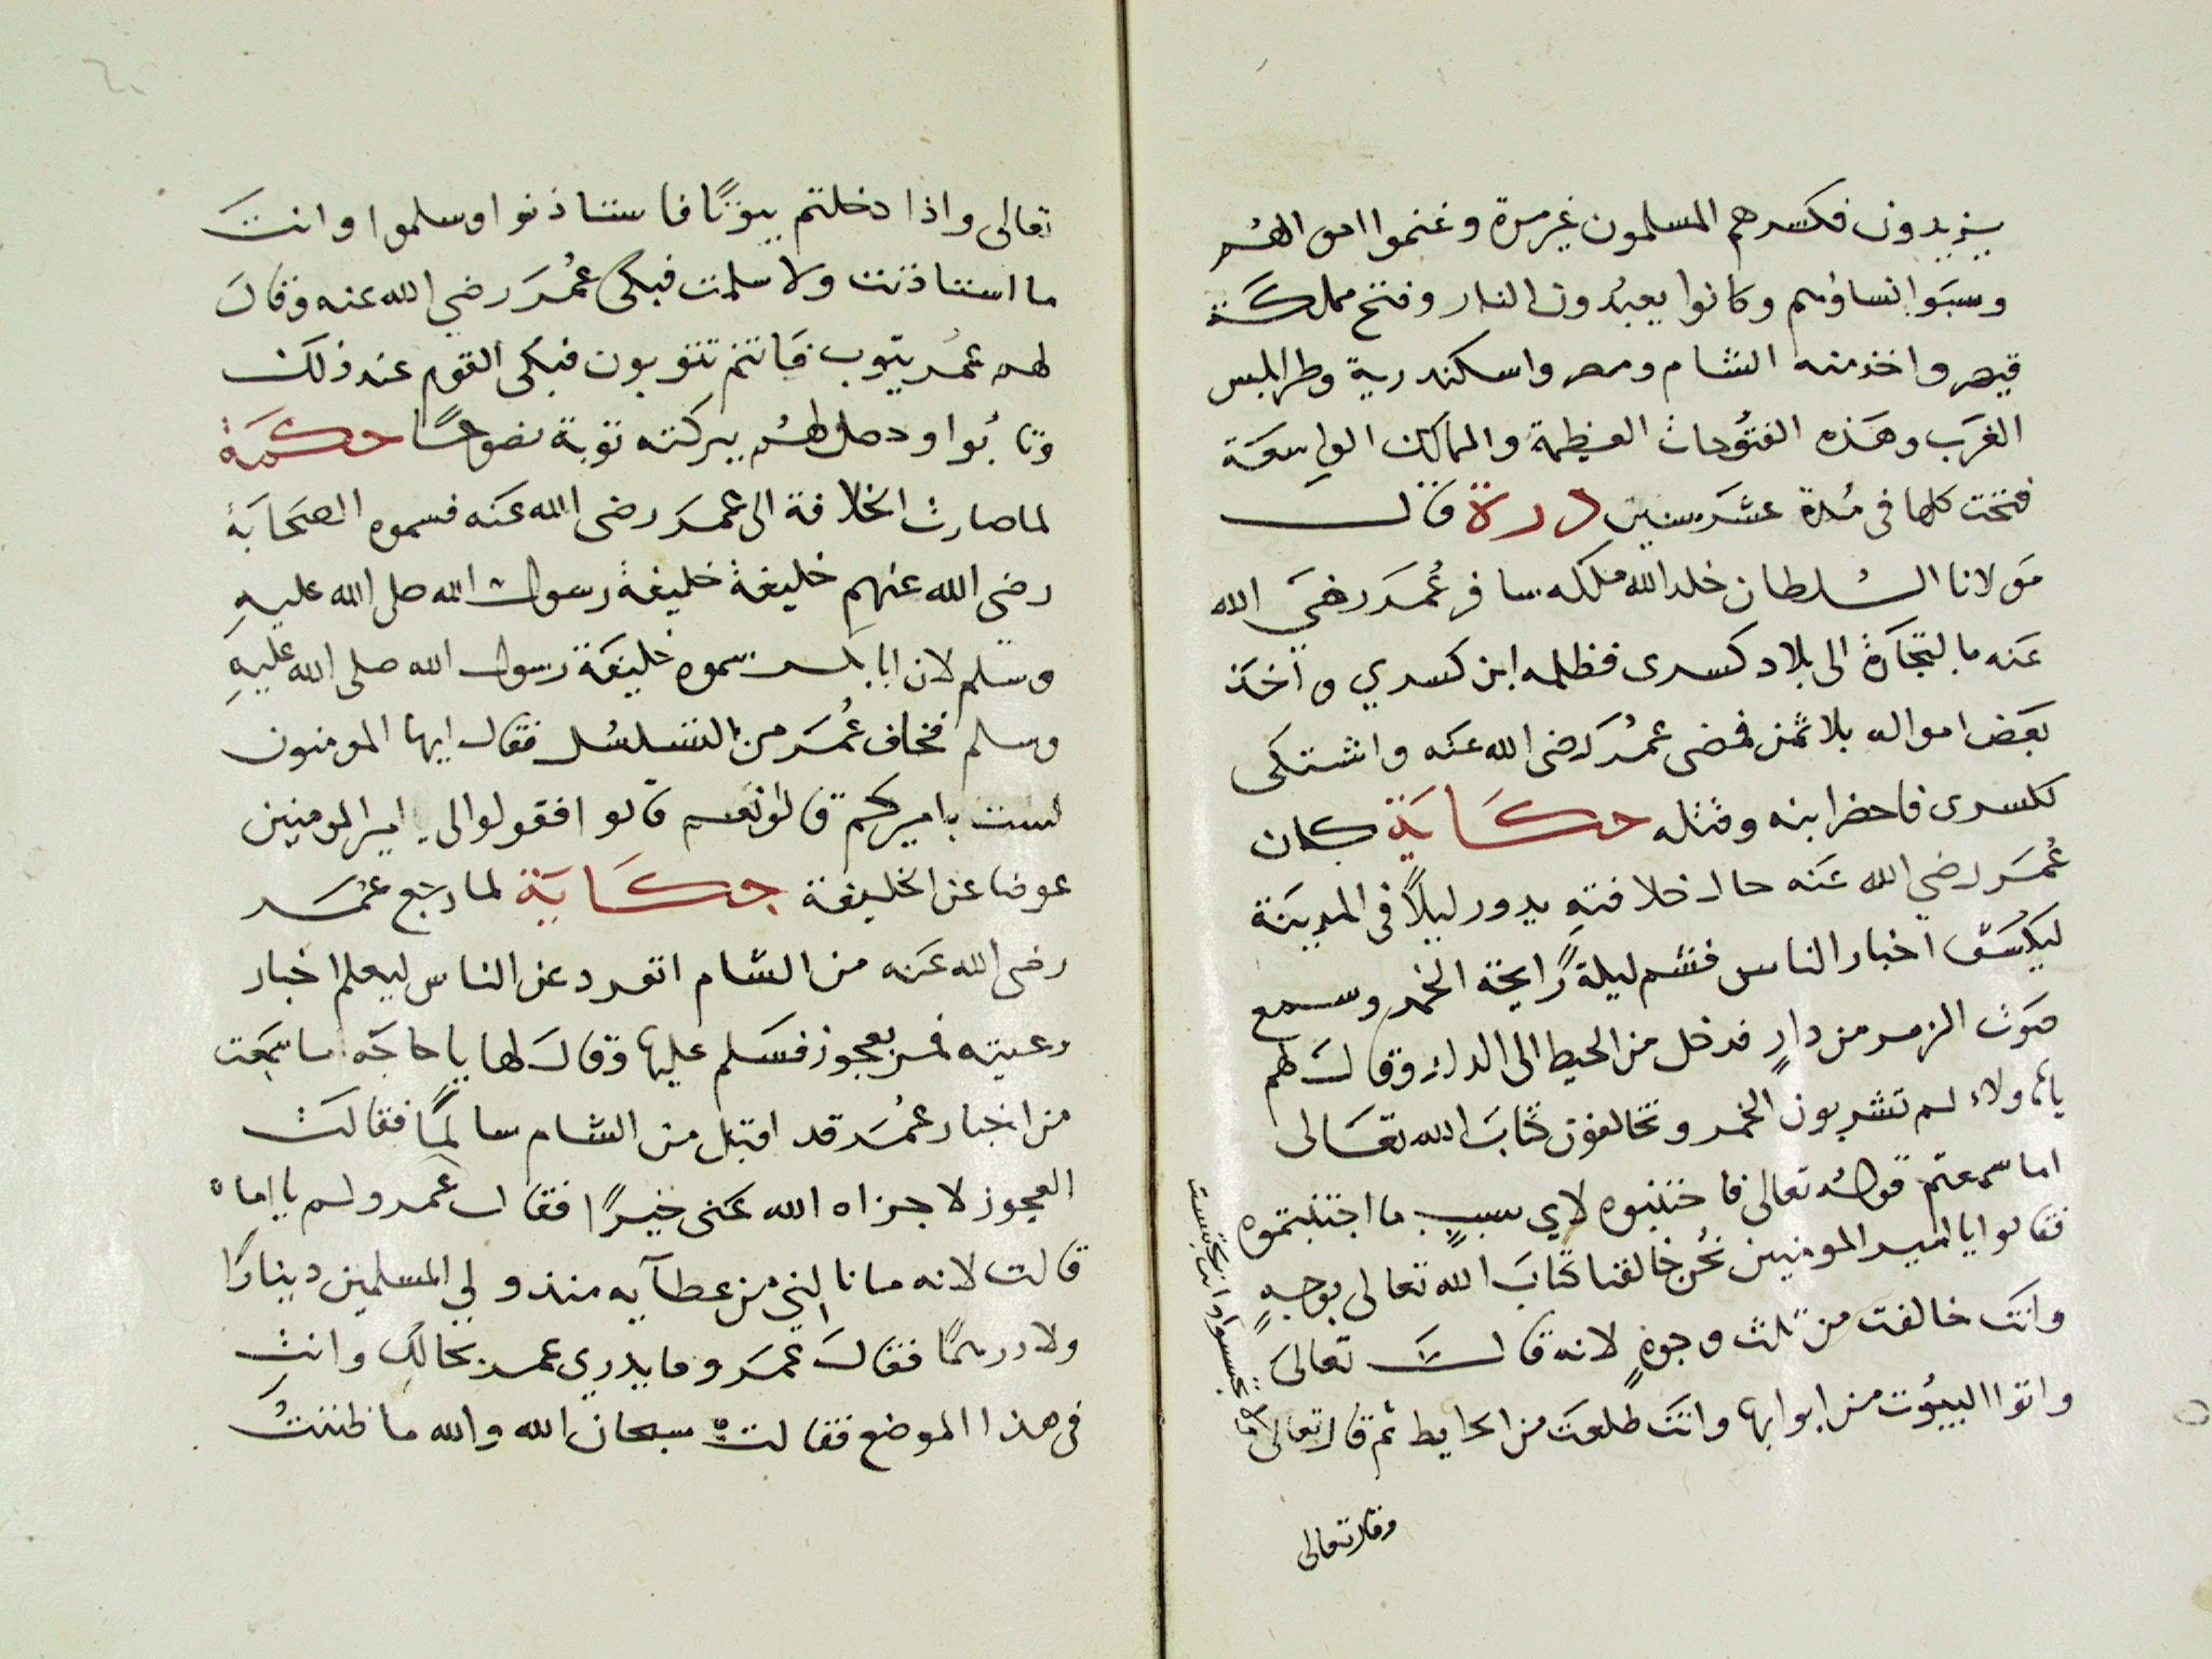 يزيدون فكسرهم المسلمون غير مرة وغنموا اموالهم
وسبوا نساؤهم وكانوا يعبدون النار وفتح مملكة
قيصر واخذ منه الشام ومصر واسكندرية وطرابلس
الغرب وهذه الفتوحات العظيمة والممالك الواسعة
فتحت كلها في مدة عشر سنين درة قال
مولانا السلطان خلد الله ملكه سافر عمر رضي الله
عنه بالتجارة الى بلاد كسرى فظلمه ابن كسري واخذ
بعض امواله بلا ثمن فمضى عمر رضى الله عنه واشتكى
لكسرى فاحضر ابنه وقتله حكاية كان
عمر رضي الله عنه حال خلافته يدور ليلاً في المدينة
اخبار الناس فشم ليلة رايحة الخمر وسمع
صوت الزمر من دارٍ فدخل من الحيط الى الدار وقال لهم
ياهاولاء لم تشربون الخمر وتخالفون كتاب الله تعالى
اما سمعتم قوله تعالى فاجتنبوه لاي سببٍ ما اجتنبتموه
فقالوا يا امير المومنين نحن خالفنا كتاب الله تعالى بوجهٍ
وانت خالفت من ثلث وجوهٍ لانه قال تعالى
واتوا البيوت من ابوابها وانت طلعت من الحايط ثم قال تعالى
ولا تجسسوا وانت تجسست
وقال تعالى
تعالى واذا دخلتم بيوتًا فاستاذنوا وسلموا وانت
ما استاذنت ولا سلمت فبكى عمر رضي الله عنه وقال
لهم عمر يتوب فانتم تتوبون فبكى القوم عند ذلك
وتابوا وحصل لهم ببركته توبة نصوحًا حكمة
لما صارت الخلافة الى عمر رضى الله عنه فسموه الصحابة
رضى الله عنهم خليفة خليفة رسول الله صلى الله عليه
وسلم لان ابا بكر سموه خليفة رسول الله صلى الله عليه
وسلم فخاف عمر من التسلسل فقال ايها المومنون
لست باميركم قالوا نعم قالو افقولوا لى امير المومنين
عوضا عن الخليفة حكاية لما رجع عمر
رضى الله عنه من الشام انفرد عن الناس ليعلم اخبار
رعيته فمر بعجوز فسلم عليها وقال لها يا حاجه ما سمعت
من اخبار عمر قد اقبل من الشام سالمًا فقالت
العجوز لا جزاه الله عنى خيرًا فقال عمر ولم يا اماه
قالت لانه ما نالني من عطآيه منذ ولي المسلمين دينارًا
ولا درهمًا فقال عمر وما يدري عمر بحالك وانت
في هذا الموضع فقالت سبحان الله والله ما ظننتُ